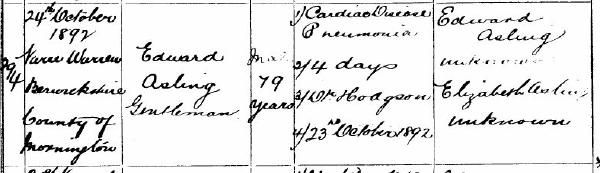 24th October
1892
Narre Warren
Berwickshire
County of
Mornington
Edward
Asling
Gentleman
79
Years
1/ Cardiac Disease
Pneumonia
2/ 4 days
3/ Dr Hodgson
4/ 23rd October 1892
Edward
Asling
unknown
Elizabeth Asling
unknown